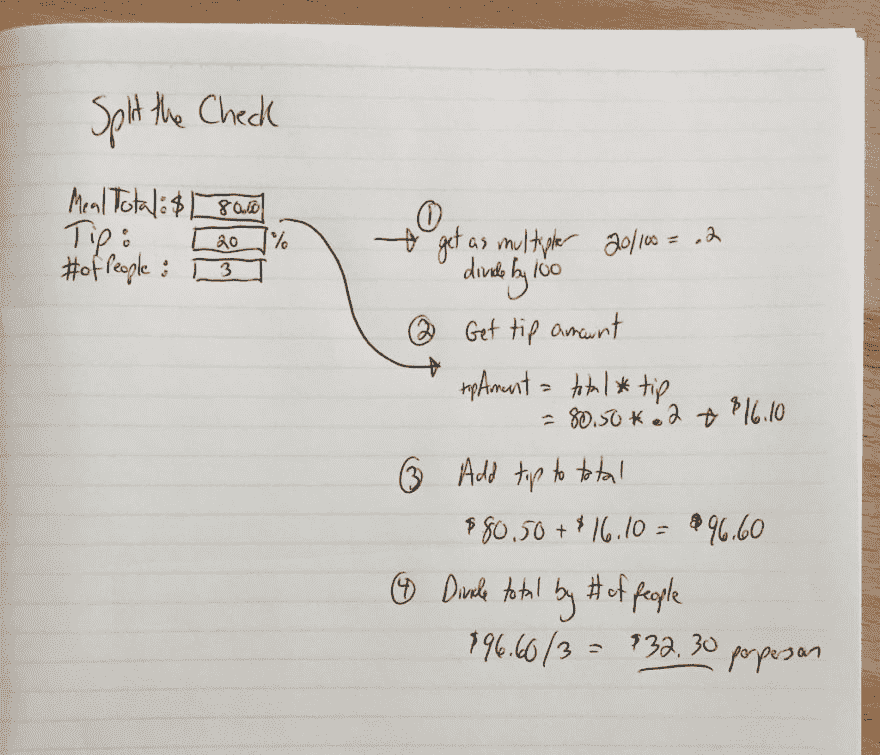 Split the Check
Meal Total: $ 80.50
Tip: 20 %
# of People: 3
①
get as multipler 20/100 = .2
divide by 100
② Get tip amount
tipAmount = total * tip
= 80.50 * .2 → $16.10
③ Add tip to total
$80.50 + $16.10 = $96.60
④ Divide total by # of people
$96.60/3 = $32.30 per person